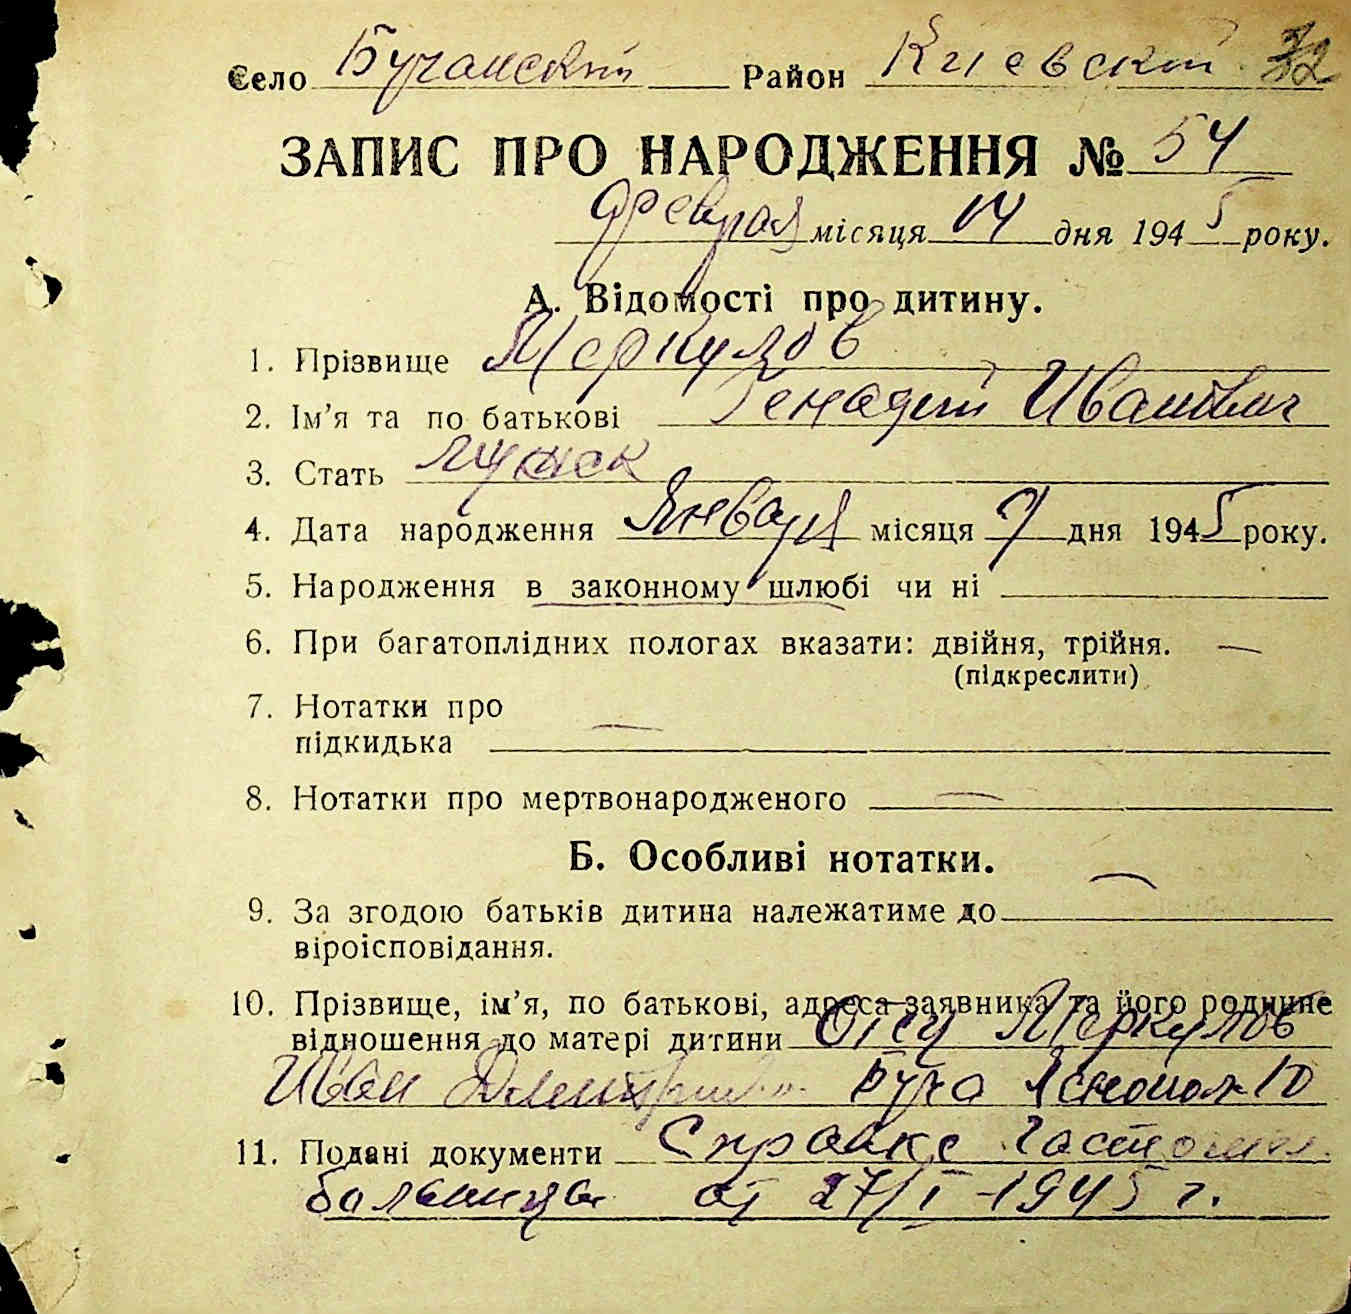 Село Бучанский Район Киевский 32
ЗАПИС ПРО НАРОДЖЕННЯ № 54
Февраля місяця 14 дня 1945 року.
А. Відомості про дитину.
1. Прізвище Меркулов
2. Ім'я та по батькові Генадий Иванович
3. Стать мужск
4. Дата народження Января місяця 7 дня 1945 року.
5. Народження в законному шлюбі чи ні
6. При багатоплідних пологах вказати: двійня, трійня. —
(підкреслити)
7. Нотатки про
підкидька —
8. Нотатки про мертвонародженого —
Б. Особливі нотатки.
9. За згодою батьків дитина належатиме до —
віроісповідання.
10. Прізвище, ім'я, по батькові, адреса заявника та його родинне
відношення до матері дитини Отец Меркулов
Иван Буча 10
11. Подані документи
больницы от 27/I-1945 г.